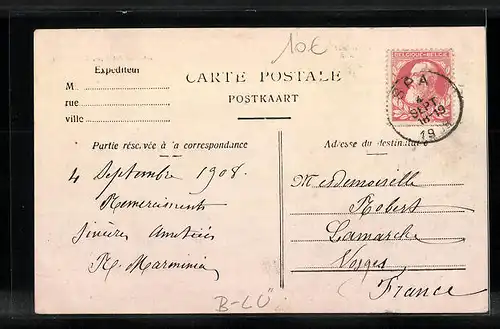 10€
Expéditeur
M
rue
ville
CARTE POSTALE
POSTKAART
BELGIQUE-BELGIË
SPA
4
SEPT
18-19
19
Partie réservée à la correspondance
Adresse du destinataire
4 Septembre 1908.
Remerciements
Sincères Amitiés
Mesdemoiselle
Robert
Lamarche
Vosges
France
B-LÜ